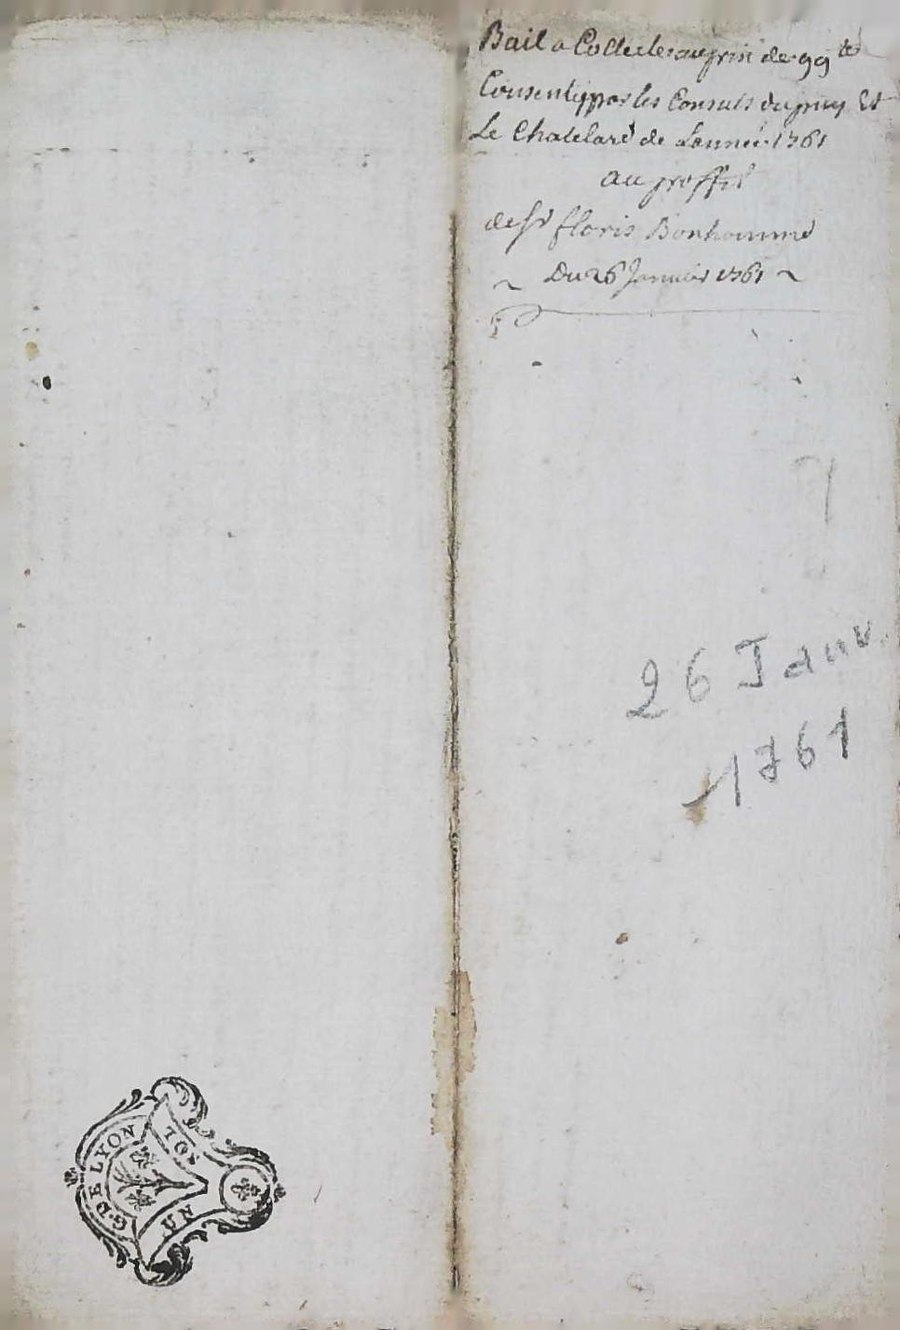 Bail a Collecte au prix de 99 ₶
Consenty par les Consuls du puy Et
Le Chatelard de Lannée 1761
au proffit
de Sr floris Bonhomme
~ Du 26 Janvier 1761 ~
26 Janv.
1761
G. DE LYON
UN SOL